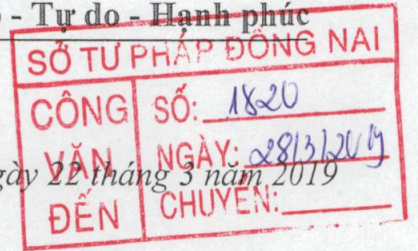 - Tự do - Hạnh phúc
SỞ TƯ PHÁP ĐỒNG NAI
CÔNG VĂN ĐẾN
SỐ: 1820
NGÀY: 28/3/2019
ngày 22 tháng 3 năm 2019
CHUYỂN: